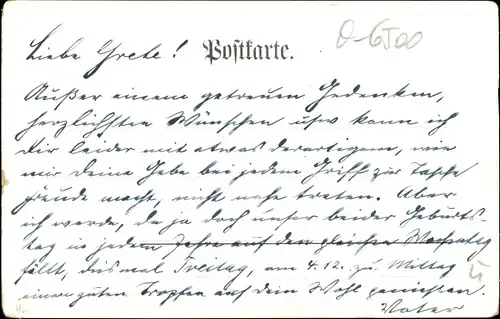 Liebe Grete! Postkarte. O-6500
Außer einem getreuen Gedenken,
herzlichsten Wünschen usw kann ich
Dir leider mit etwas derartigem, wie
mir Deine Gabe bei jedem Griff zur Tasche
Freude macht, nicht nahe treten. Aber
ich werde, da ja doch unser beider Geburts-
tag in jedem Jahre auf den gleichen Wochentag
fällt, diesmal Freitag, am 4.12. zu Mittag
einen guten Tropfen auf dein Wohl genießen.
Vater